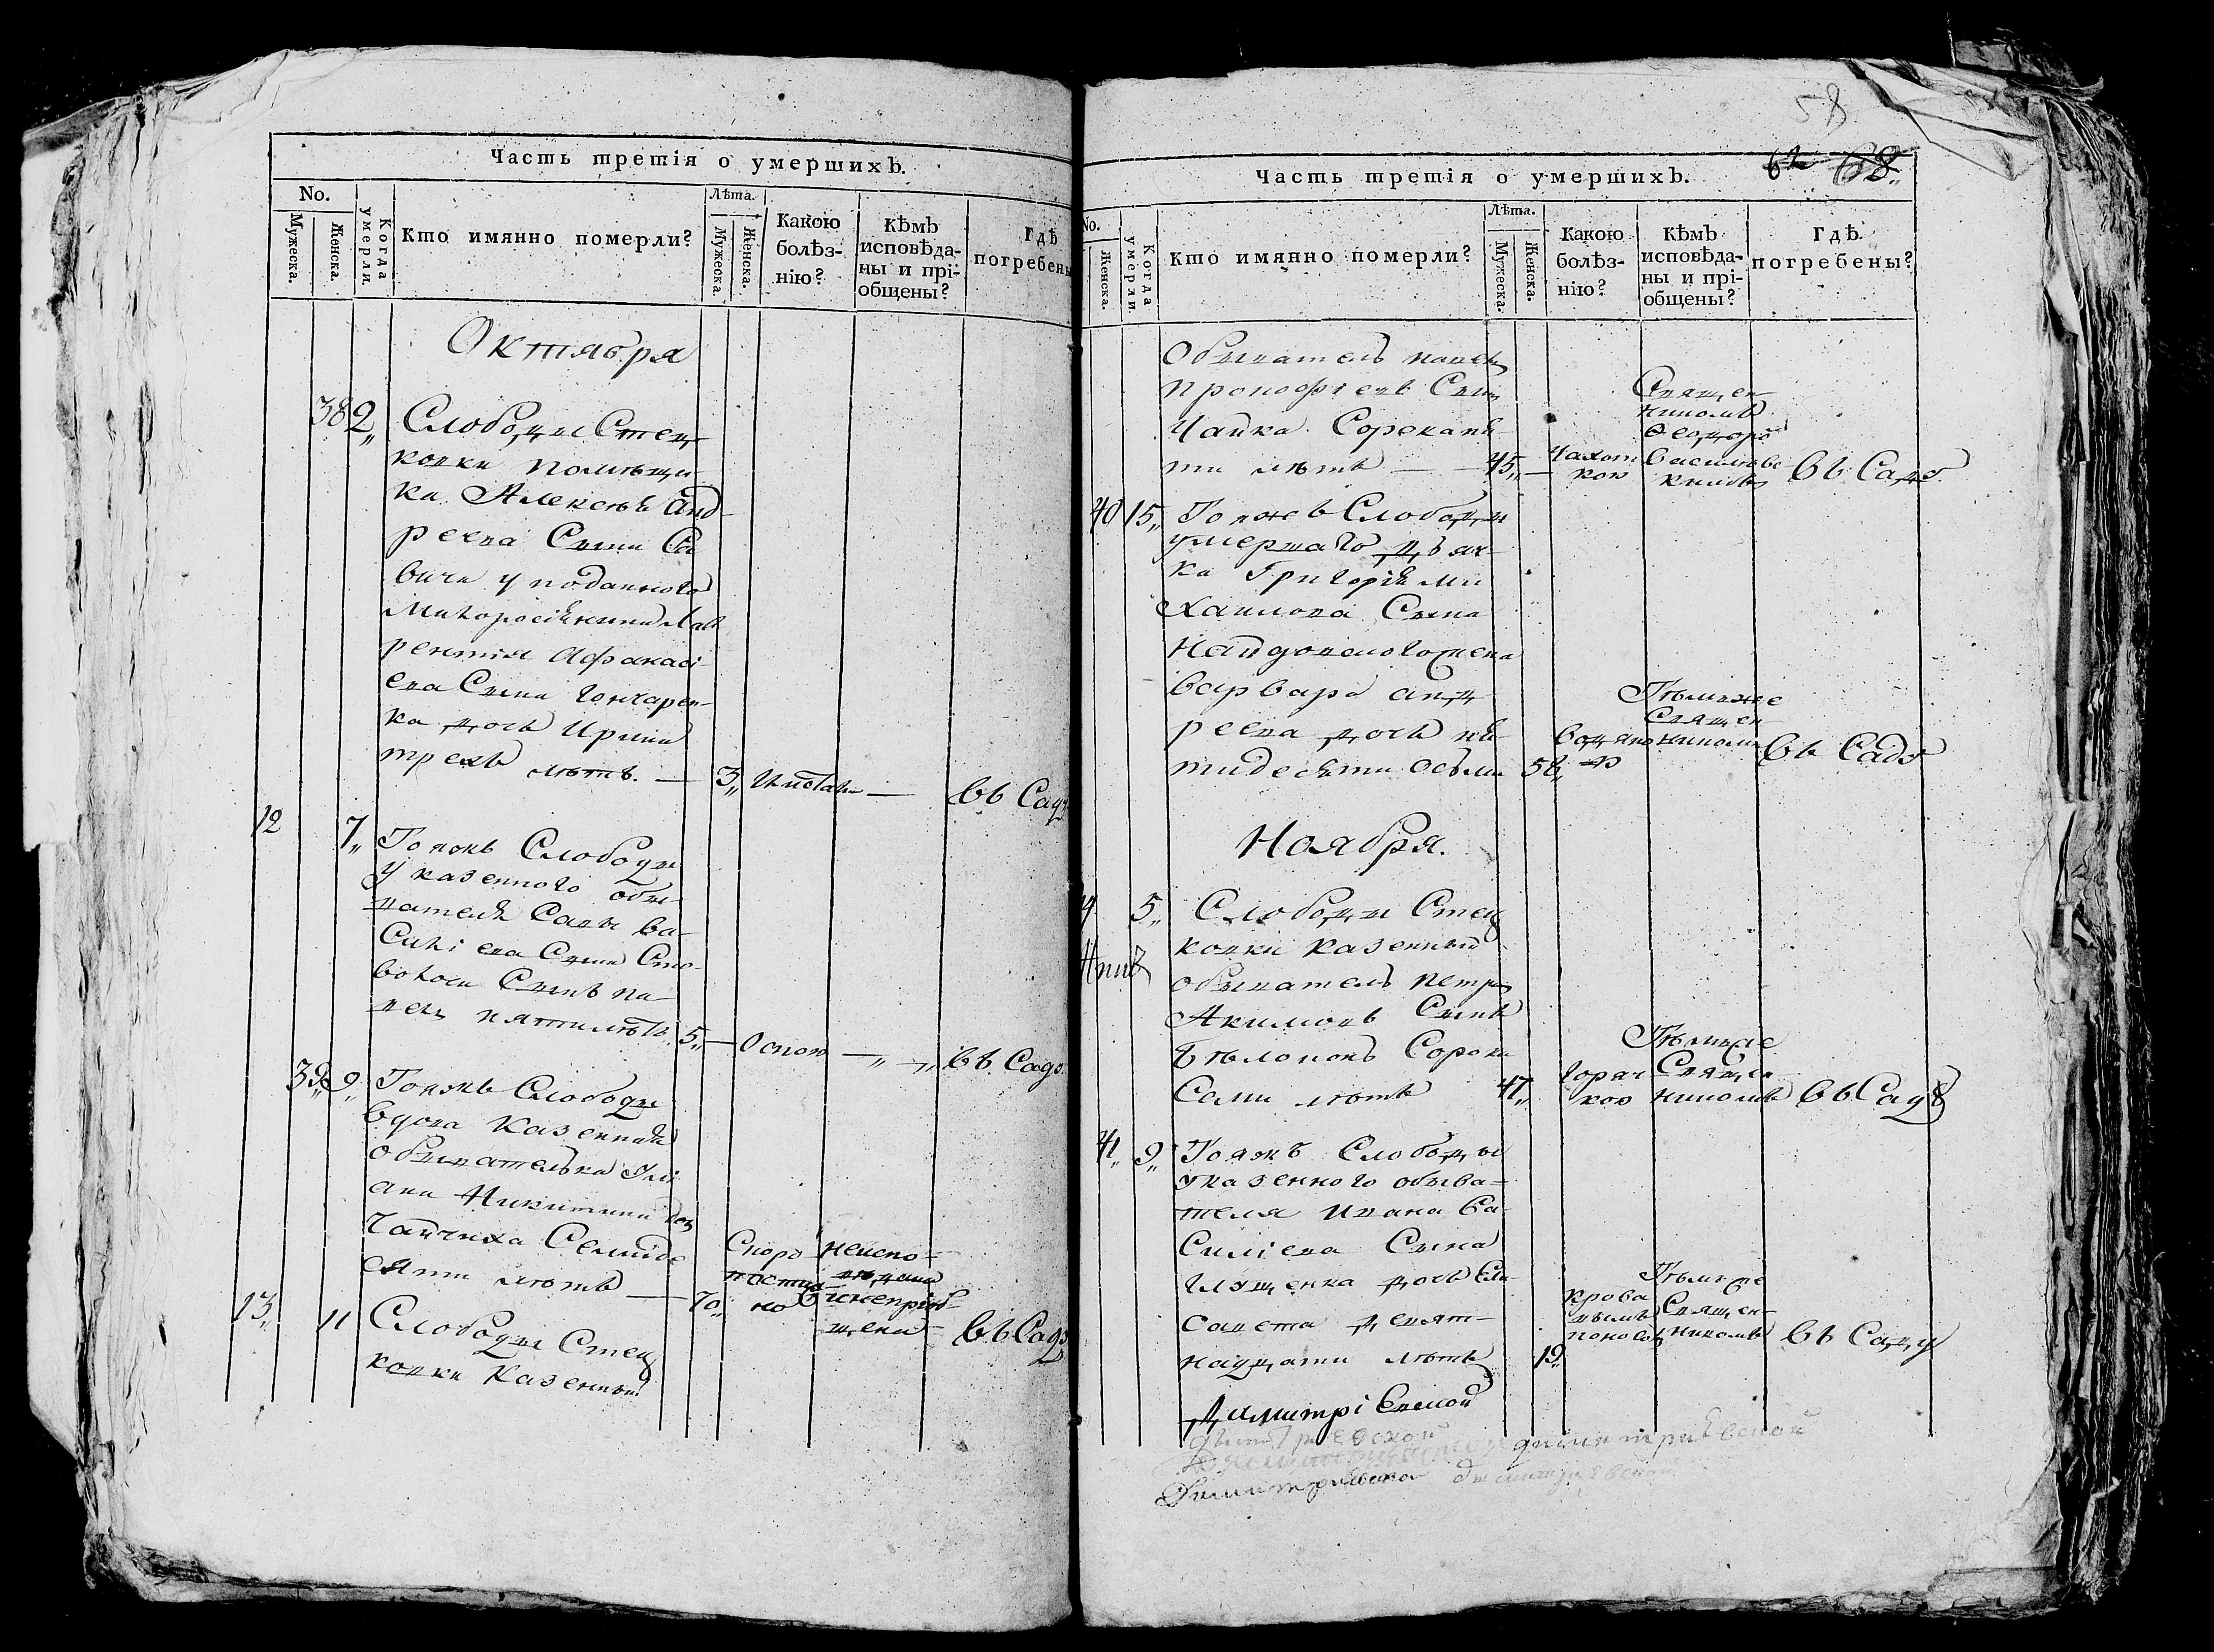 Часть третія о умершихъ.
No.
Мужеска.
Женска.
Когда умерли.
Кто имянно померли?
Лѣта.
Мужеска.
Женска.
Какою болѣз-
нію?
Кѣмъ
исповѣда-
ны и прі-
общены?
Гдѣ
погребены
Октября
38 2„ Слободы Стец
ковки помѣщи
ка Алексѣя Анд
реева Сына Са
вича у поданного
Малоросіянина Лав
рентія Афанасі
ева Сына Гончарен-
ка дочь Ирина
трехъ лѣтъ. — 3„ — въ Саду
12 7„ Тояжъ Слободы
у казенного обы-
вателя Савы Ва-
Силіева Сына Сто
волоса Сынъ Па
велъ пяти лѣтъ. 5„ — Оспою — „ — „ въ Саду
39 9„ Тояжъ Слободы
вдова казенная
обывателька Улі
ана Никитина доч
Чайчиха Семиде
сяти лѣтъ — 70„
Скоро
постиж
но
неиспо-
вѣдана
и непріоб-
щена
въ Саду
13„ 11 Слободы Стец
ковки Казенный
58
Часть третія о умершихъ.
No.
Женска.
Когда умерли.
Кто имянно померли?
Лѣта.
Мужеска.
Женска.
Какою
болѣз-
нію?
Кѣмъ
исповѣда-
ны и прі-
общены?
Гдѣ
погребены?
Обыватель Павелъ
Прокофіевъ Сынъ
Чайка Сорокапя
ти лѣтъ — 45„ — Чахот
кою
Священ
никомъ
Феодоро
Василѣвс
кимъ
въ Саду
40 15„ Тояжъ Слободы
умершаго дьяч
ка Григорія Ми
хаилова Сына
жена
Варвара Анд
реева дочь пя
тидесяти осьми 58„
водяно
ю
Тѣмъже
Священ
никомъ
въ Саду
Ноября.
5„ Слободы Стец
ковки казенный
обыватель Петръ
Акимовъ Сынъ
Бѣловокъ Сорокъ
Семи лѣтъ 47„
горяч
кою
Тѣмъже
Священ
никомъ
въ Саду
41„ 9„ Тояжъ Слободы
у казенного обыва-
теля Ивана Ва
Силіева Сына
Глущенка дочь Ели
савета девят-
надцати лѣтъ 19„
крова
вымъ
поносом
Тѣмъже
Священ
никомъ
въ Саду
Димитрі Евской